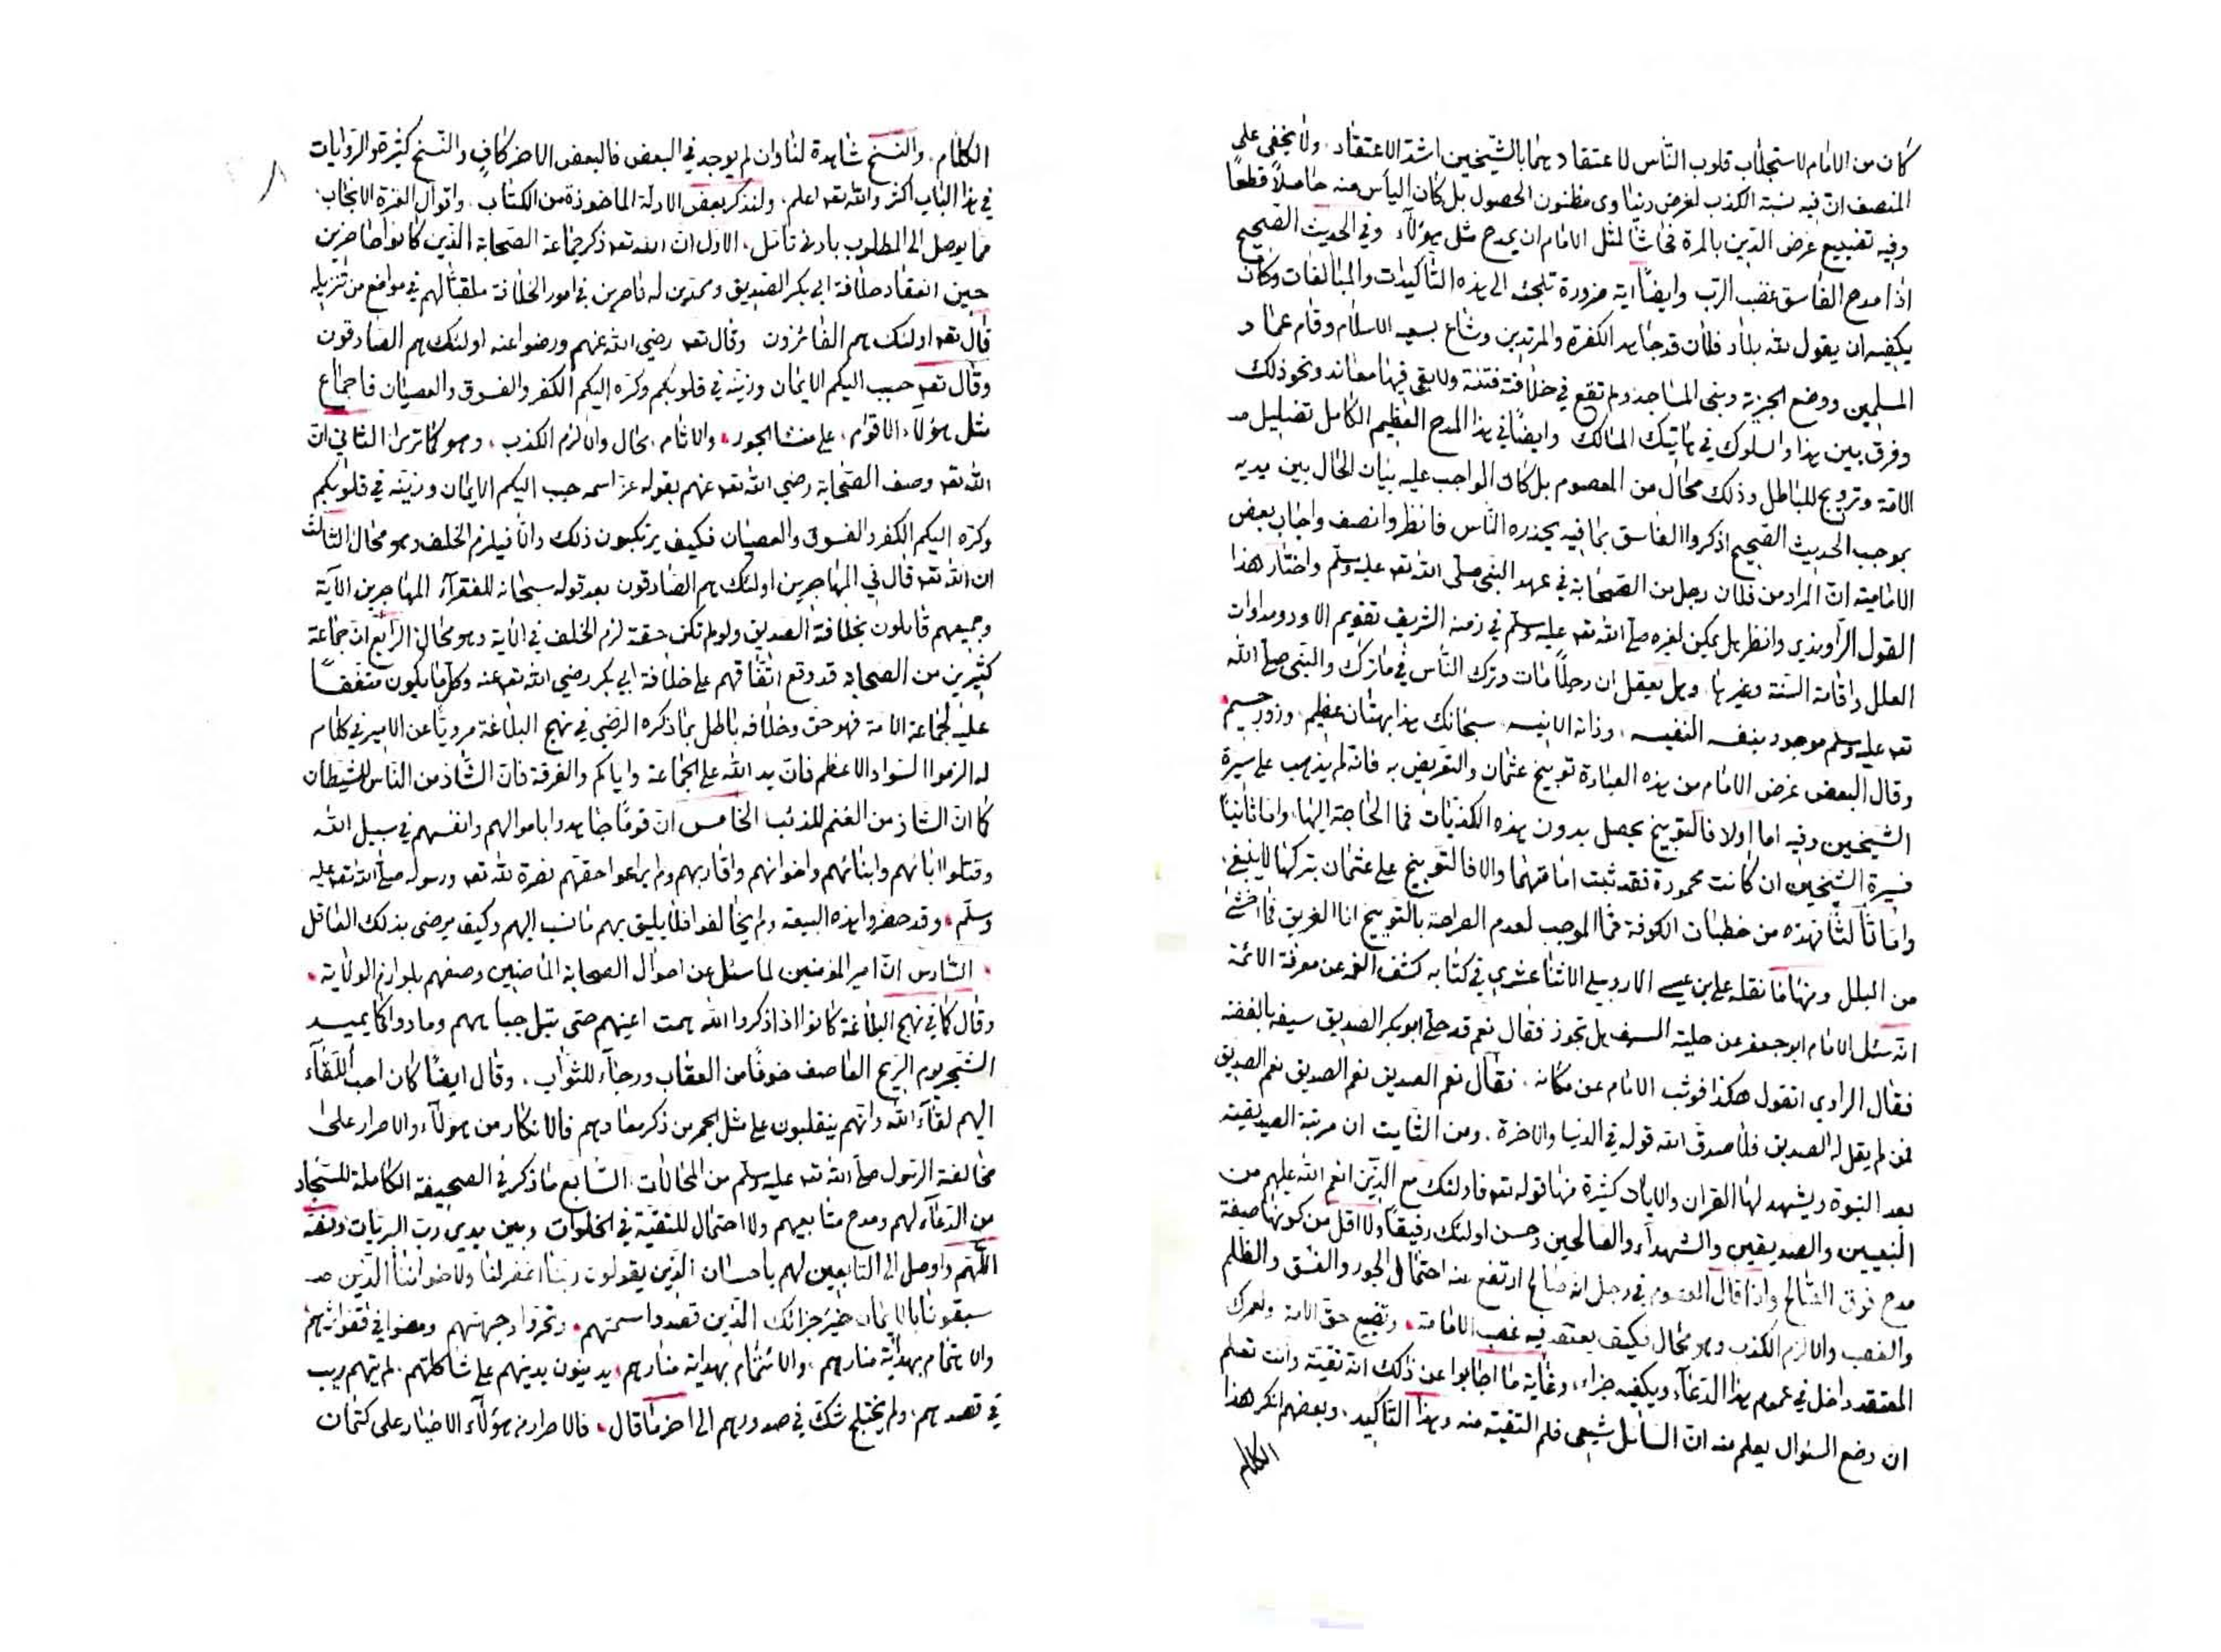 كان من الامام لاستجلاب قلوب الناس لاعتقادهما بالشيخين اشد الاعتقاد ولا يخفى على
المنصف ان فيه نسبة الكذب لغرض دنياوى مظنون الحصول بل كان اليأس منه حاصلاً قطعاً
وفيه تضييع غرض الدين بالمرة فحاشا لمثل الامام ان يمدح مثل هؤلاء وفي الحديث الصحيح
اذا مدح الفاسق غضب الرب وايضاً اية ضرورة تلجئه الى هذه التأكيدات والمبالغات وكان
يكفيه ان يقول لله بلاد فلان قد جاهد الكفرة والمرتدين وشاع بسعيه الاسلام وقام عماد
المسلمين ووضع الجزية وبنى المساجد ولم تقع في خلافته فتنة ولا بقى فيها معاند ونحو ذلك
وفرق بين هذا والسلوك في هاتيك المسالك وايضاً في هذا المدح العظيم الكامل تضليل
الامة وترويج للباطل وذلك محال من المعصوم بل كان الواجب عليه بيان الحال بين يديه
بموجب الحديث الصحيح اذكروا الفاسق بما فيه يحذره الناس فانظر وانصف واجاب بعض
الامامية ان المراد من فلان رجل من الصحابة في عهد النبى صلى الله تعـ عليه وسلم واختار هذا
القول الراوندي وانظر هل يمكن لغيره صلى الله تعـ عليه وسلم في زمنه الشريف تقويم الاود ومداوات
العلل واقامة السنة وغيرها وهل يعقل ان رجلاً مات وترك الناس في ما ترك والنبى صلى الله
تعـ عليه وسلم موجود بنفسه النفيسه وذاته الانيسه سبحانك هذا بهتان عظيم وزور جسيم
وقال البعض غرض الامام من هذه العبارة توبيخ عثمان والتعريض به فانه لم يذهب على سيرة
الشيخين وفيه اما اولا فالتوبيخ يحصل بدون هذه الكذبات فما الحاجة اليها واما ثانياً
فسيرة الشيخين ان كانت محمودة فقد ثبت امامتهما والا فالتوبيخ على عثمان بتركها لا ينبغي
واما ثالثا فهذه من خطبات الكوفة فما الموجب لعدم الصراحة بالتوبيخ انا الغريق فما اخشى
من البلل ومنها ما نقله على بن عيسى الاردبيلى الاثنا عشري في كتابه كشف الغمه عن معرفة الائمة
انه سئل الامام ابو جعفر عن حلية السيف هل تجوز فقال نعم قد حلى ابو بكر الصديق سيفه بالفضة
فقال الراوي اتقول هكذا فوثب الامام عن مكانه فقال نعم الصديق نعم الصديق نعم الصديق
فمن لم يقل له الصديق فلا صدق الله قوله في الدنيا والاخرة ومن الثابت ان مرتبة الصديقية
بعد النبوة ويشهد لها القران والايات كثيرة منها قوله تعـ فاولئك مع الذين انعم الله عليهم من
النبيين والصديقين والشهدآء والصالحين وحسن اولئك رفيقاً ولا اقل من كونها صيغة
مدح فوق الصالح واذا قال المعصوم في رجل انه صالح ارتفع عنه احتمال الجور والفسق والظلم
والغصب والا لزم الكذب وهو محال فكيف يعتقد فيه غصب الامامة وتضييع حق الامة ولعمرك
المعتقد داخل في عموم هذا الدعآء ويكفيه جزاء وغاية ما اجابوا عن ذلك انه تقية وانت تعلم
ان وضع السئوال يعلم منه ان السائل شيعى فلم التقية منه وبهذا التأكيد وبعضهم انكر هذا
الكلام
الكلام والنسخ شاهدة لنا وان لم يوجد في البعض فالبعض الاخر كافٍ والنسخ كثيرة والروايات
في هذا الباب اكثر والله تعـ اعلم ولنذكر بعض الادلة الماخوذة من الكتاب واقوال العترة الانجاب
مما يوصل الى المطلوب بادنى تامل الاول ان الله تعـ ذكر جماعة الصحابة الذين كانوا حاضرين
حين انعقاد خلافة ابي بكر الصديق وممدين له ناصرين في امور الخلافة ملقباً لهم في مواضع من تنزيله
قال تعـ اولئك هم الفائزون وقال تعـ رضي الله عنهم ورضوا عنه اولئك هم الصادقون
وقال تعـ حبب اليكم الايمان وزينه في قلوبكم وكره اليكم الكفر والفسوق والعصيان فاجماع
مثل هؤلاء الاقوام على منشا الجور والاثام محال والا لزم الكذب وهو كما ترى الثاني ان
الله تعـ وصف الصحابة رضي الله تعـ عنهم بقوله عز اسمه حبب اليكم الايمان وزينه في قلوبكم
وكره اليكم الكفر والفسوق والعصيان فكيف يرتكبون ذلك والا فيلزم الخلف وهو محال الثالث
ان الله تعـ قال في المهاجرين اولئك هم الصادقون بعد قوله سبحانه للفقرآء المهاجرين الآية
وجميعهم قائلون بخلافة الصديق ولو لم تكن حقة لزم الخلف في الآية وهو محال الرابع ان جماعة
كثيرين من الصحابه قد وقع اتفاقهم على خلافة ابي بكر رضي الله تعـ عنه وكل ما يكون متفقاً
عليه لجماعة الامة فهو حق وخلافه باطل بما ذكره الرضي في نهج البلاغة مروياً عن الامير في كلام
له الزموا السواد الاعظم فان يد الله على الجماعة واياكم والفرقة فان الشاذ من الناس للشيطان
كما ان الشاذ من الغنم للذئب الخامس ان قوماً جاهدوا باموالهم وانفسهم في سبيل الله
وقتلوا ابائهم وابنائهم واخوانهم واقاربهم ولم يراعوا حقهم نصرة لله تعـ ورسوله صلى الله تعـ عليه
وسلم وقد حضروا هذه البيعة ولم يخالفوا افلا يليق بهم ما نسب اليهم وكيف يرضى بذلك العاقل
السادس ان امير المؤمنين لما سئل عن احوال الصحابة الماضيين وصفهم بلوازم الولاية
وقال كما في نهج البلاغة كانوا اذا ذكروا الله همت اعينهم حتى تبتل جباههم ومادوا كما يميد
الشجر يوم الريح العاصف خوفاً من العقاب ورجآء للثواب وقال ايضاً كان احب اللقآء
اليهم لقآء الله وانهم ينقلبون على مثل الجمر من ذكر معادهم فالانكار من هؤلآء والاصرار على
مخالفة الرسول صلى الله تعـ عليه وسلم من المحالات السابع ما ذكر في الصحيفة الكاملة للسجاد
من الدعآء لهم ومدح متابعيهم ولا احتمال للتقية في الخلوات وبين يدي رب البريات ولفظه
اللهم واوصل الى التابعين لهم باحسان الذين يقولون ربنا اغفر لنا ولاخواننا الذين
سبقونا بالايمان خير جزائك الذين قصدوا سمتهم وتحروا وجهتهم ومضوا في قفو اثرهم
والاهتمام بهداية منارهم والائتمام بهداية منارهم يدينون بدينهم على شاكلتهم لم يتهم ريب
في قصدهم ولم يختلج شك في صدورهم الى اخر ما قال فالاصرار من هؤلآء الاخيار على كتمان